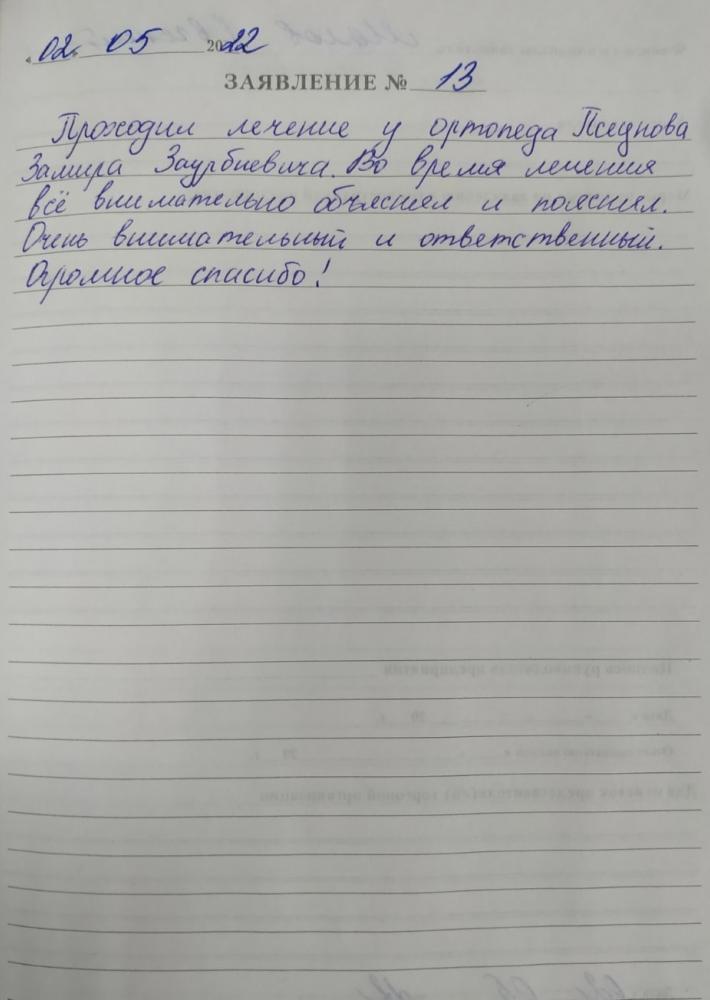 « 02 » 05 2022
ЗАЯВЛЕНИЕ № 13
Проходил лечение у ортопеда Псеунова
Замира Заурбиевича. Во время лечения
всё внимательно объяснял и пояснял.
Очень внимательный и ответственный.
Огромное спасибо!